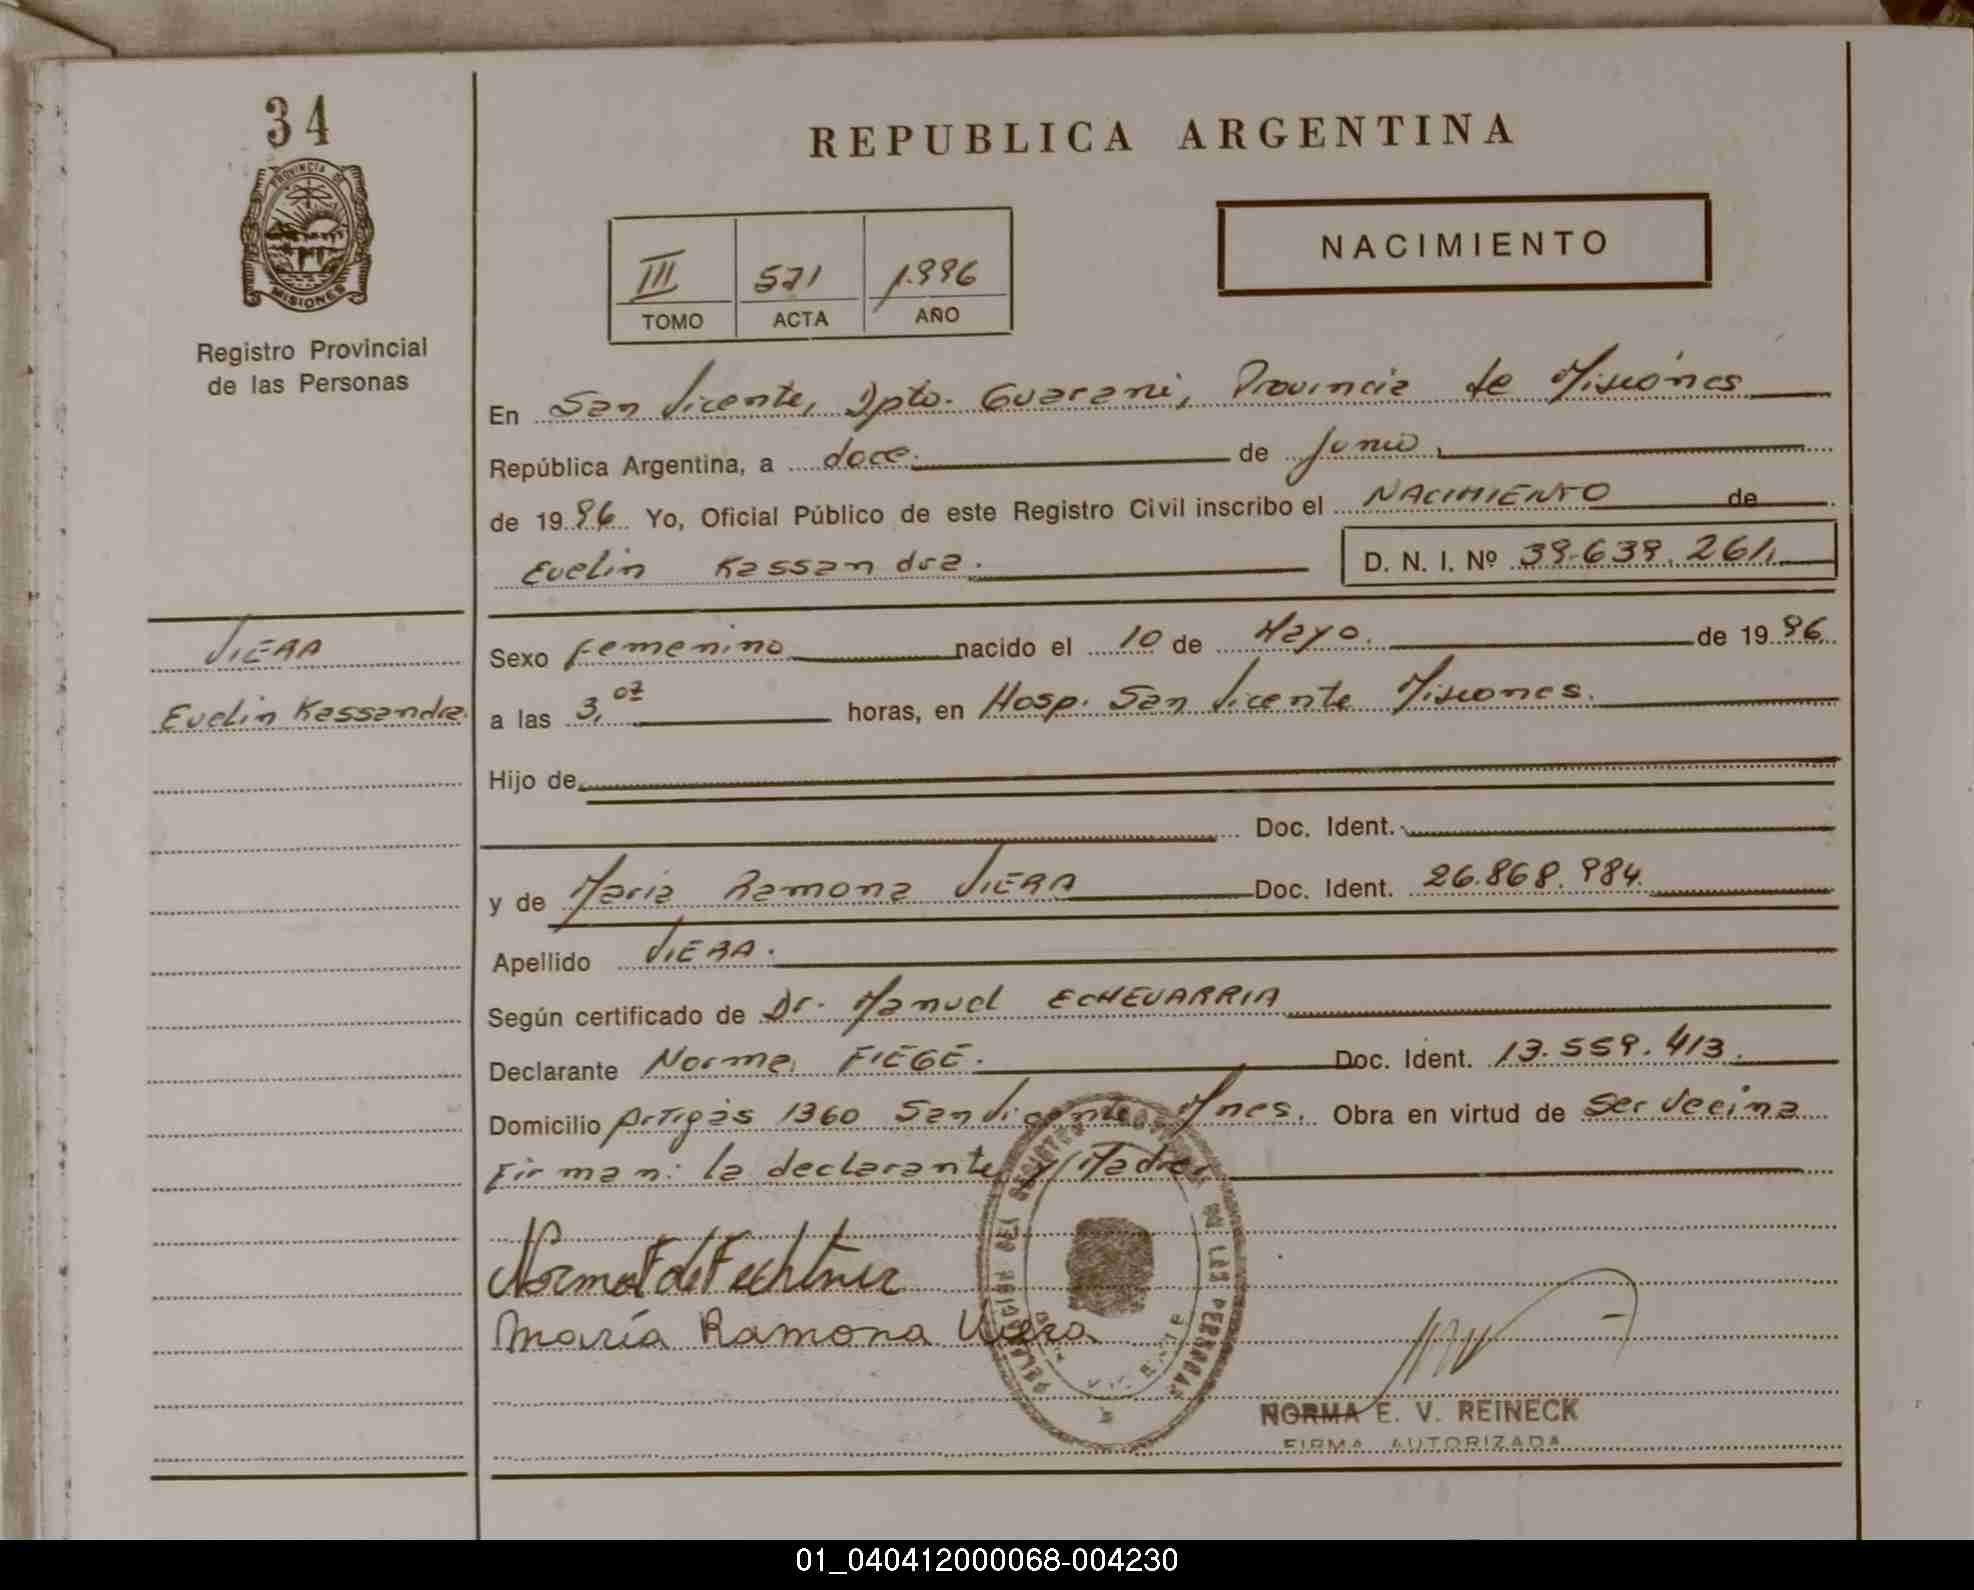 34
PROVINCIA DE
MISIONES
Registro Provincial
de las Personas
REPUBLICA ARGENTINA
III 521 1.996
TOMO ACTA AÑO
NACIMIENTO
En San Vicente, Dpto. Guarani, Provincia de Misiones
República Argentina, a doce. de Junio
de 1996 Yo, Oficial Público de este Registro Civil inscribo el NACIMIENTO de
Evelin Kassandra. D. N. I. Nº 39.639.261
VIERA
Evelin Kassandra.
Sexo Femenino nacido el 10 de Mayo. de 1996
a las 3,07 horas, en Hosp. San Vicente Misiones.
Hijo de
Doc. Ident.
y de Maria Ramona VIERA Doc. Ident. 26.868.984.
Apellido VIERA.
Según certificado de Dr. Manuel ECHEVARRIA
Declarante Norma FIEGE. Doc. Ident. 13.559.413.
Domicilio Artigas 1360 San Vicente Mnes. Obra en virtud de Ser Vecina
Firman: la declarante y Madre
Norma F de Fechtner
María Ramona Viera
NORMA E. V. REINECK
FIRMA AUTORIZADA
01_040412000068-004230